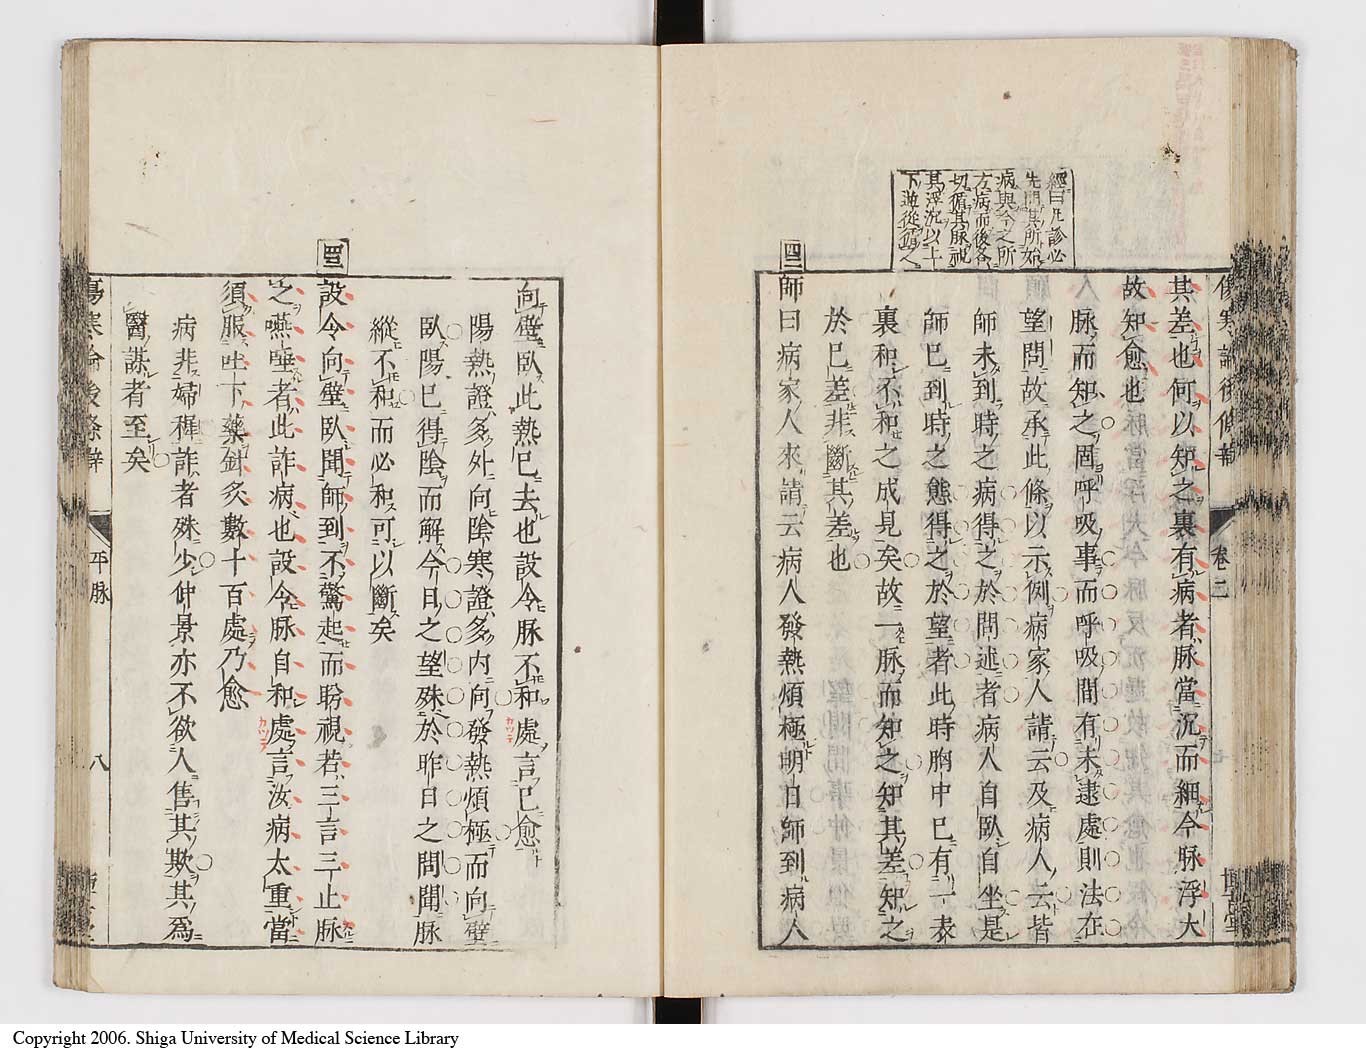 經曰凡診必
先問其所始
病與今之所
方病而後各
切循其脉視
其浮沉以上
下逆從循之
傷寒論後條辨
卷二
其差也何以知之裏有病者脉當沉而細今脉浮大
故知愈也
脉而知之固呼吸事而呼吸間有未逮處則法在
望問故承此條以示例病家人請云及病人云皆
師未到時之病得之於問述者病人自臥自坐是
師已到時之態得之於望者此時胸中已有一表
裏和不和之成見矣故一脉而知之知其差知之
於已差非斷其差也
四二
師曰病家人來請云病人發熱煩極明日師到病人
向壁臥此熱已去也設令脉不和處言已愈
陽熱證多外向陰寒證多内向發熱煩極而向壁
臥陽已得陰而解今日之望殊於昨日之問聞脉
縱不和而必和可以斷矣
四三
設令向壁臥聞師到不驚起而盻視若三言三止脉
之嚥唾者此詐病也設令脉自和處言汝病太重當
須服吐下藥針灸數十百處乃愈
病非婦穉詐者殊少仲景亦不欲人售其欺其爲
醫謀者至矣
傷寒論後條辨
平脉
八
Copyright 2006. Shiga University of Medical Science Library